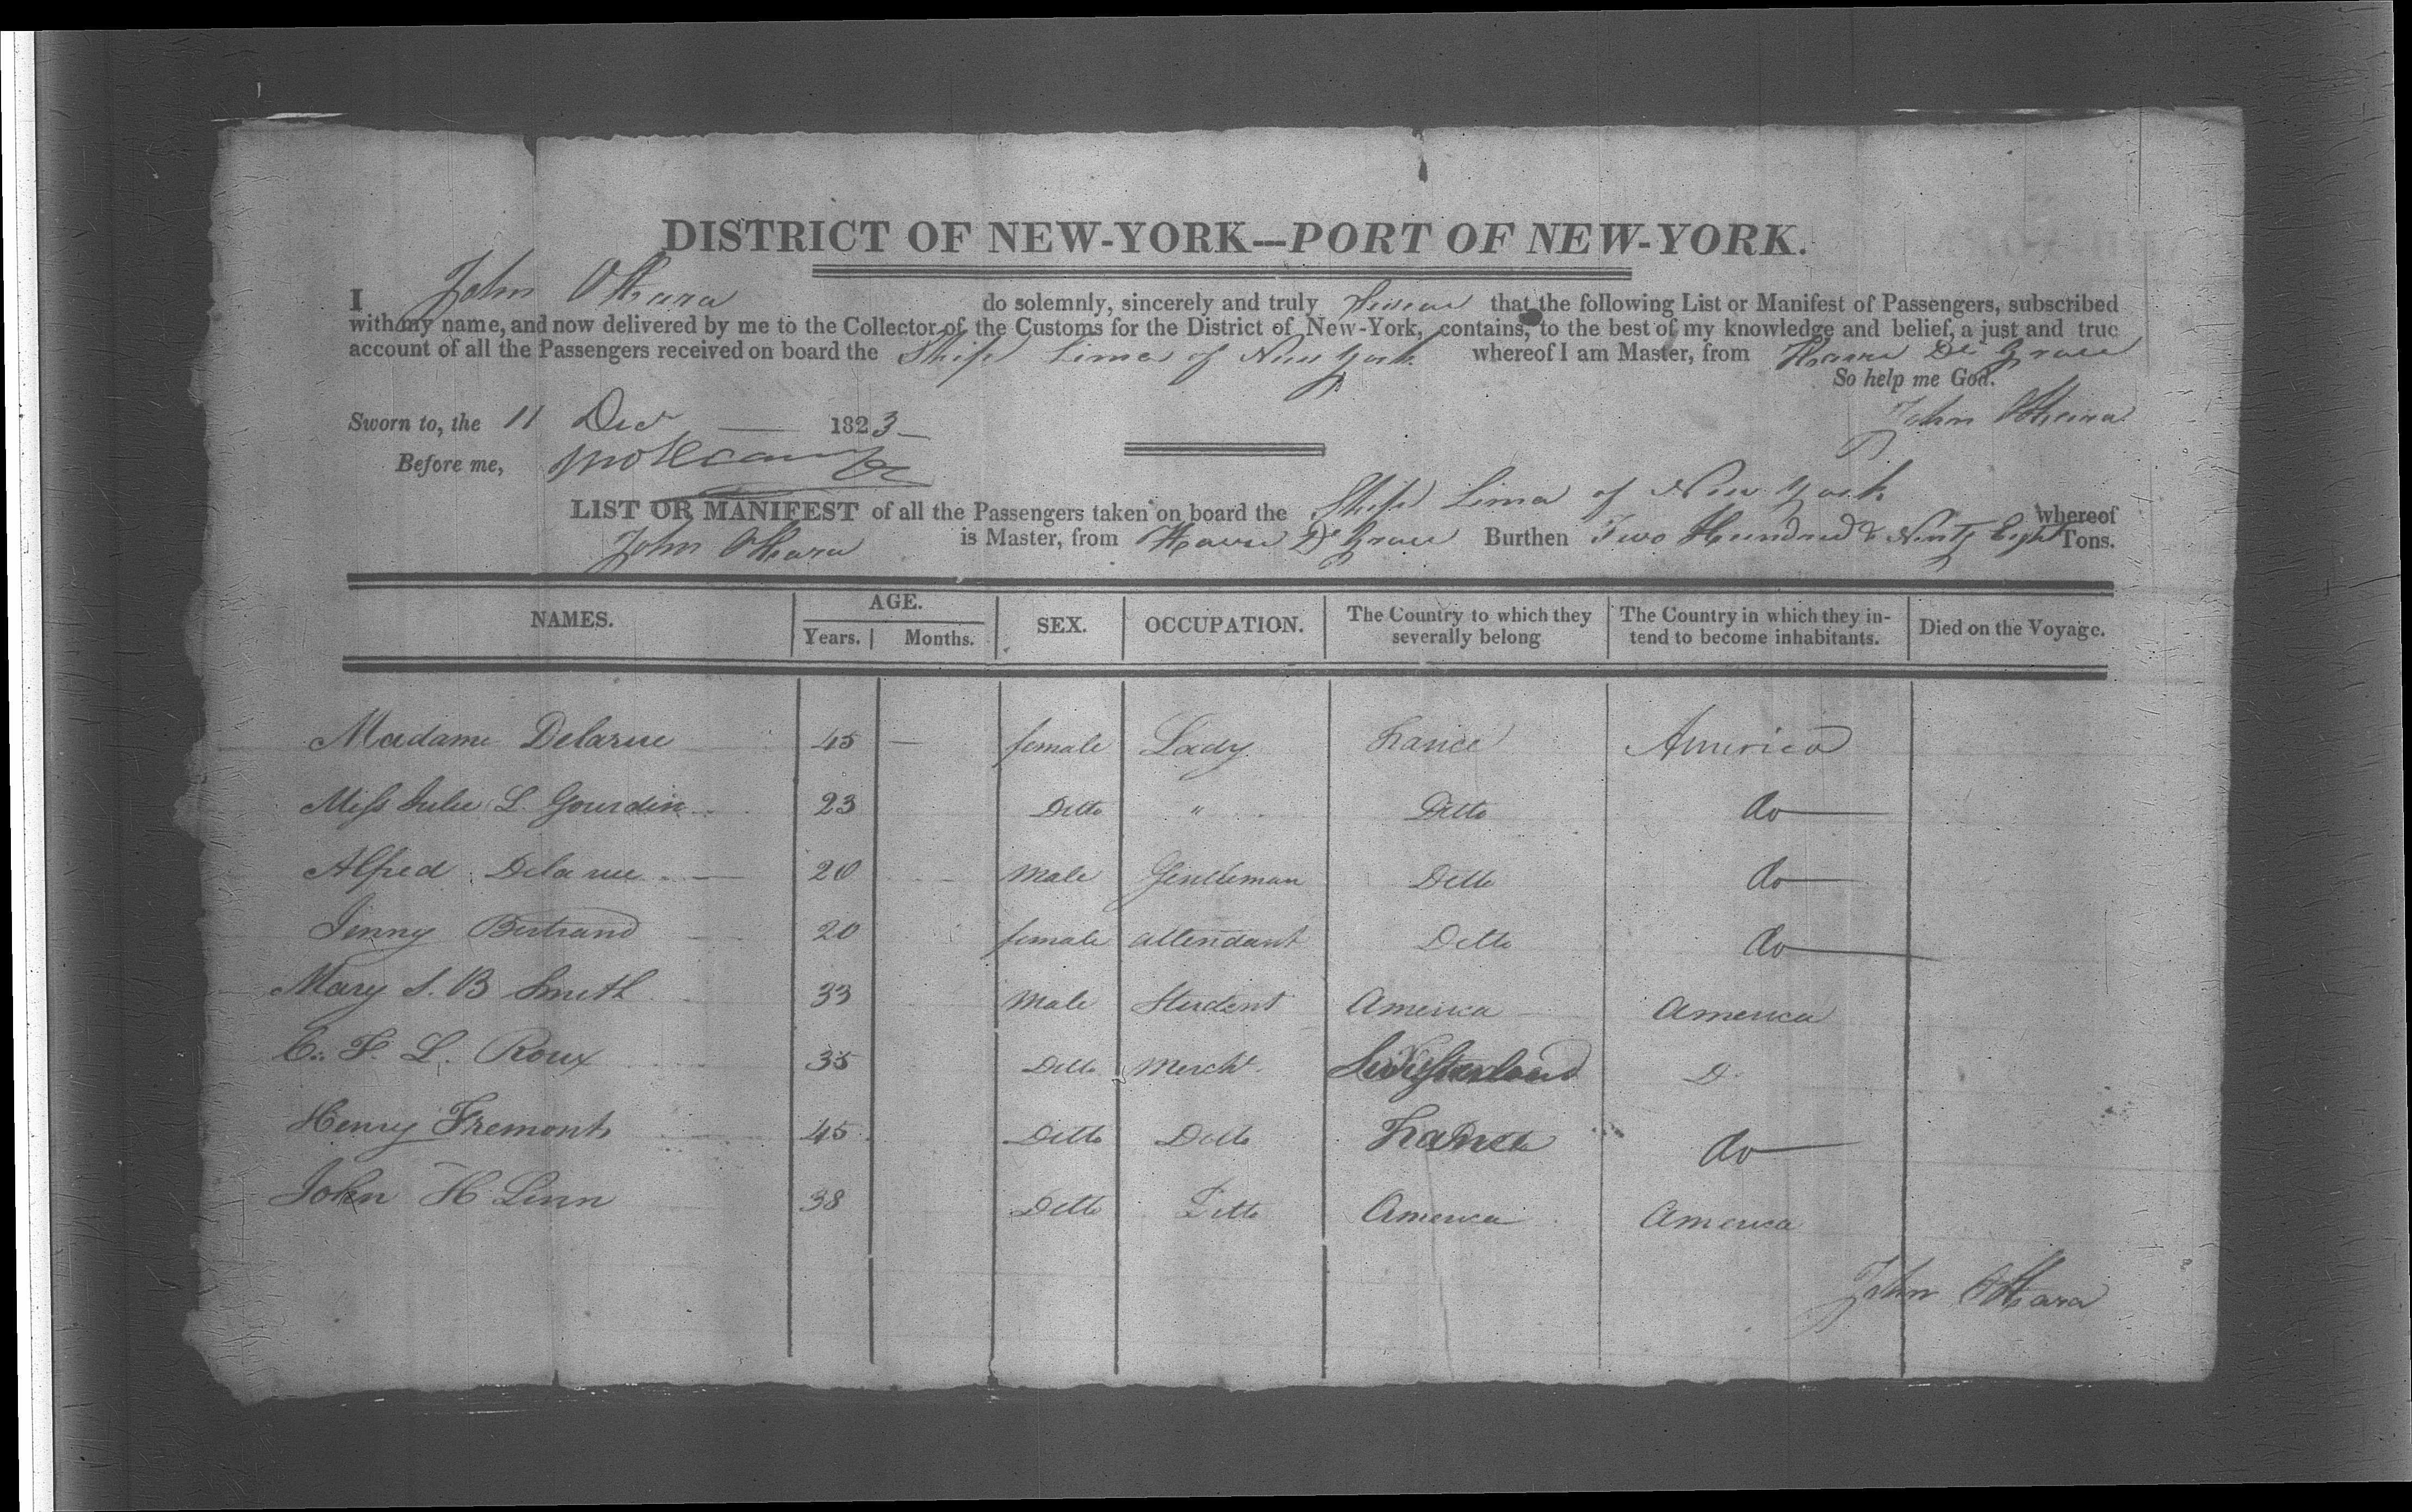 DISTRICT OF NEW-YORK—PORT OF NEW-YORK.
I John OHara do solemnly, sincerely and truly Swear that the following List or Manifest of Passengers, subscribed
with my name, and now delivered by me to the Collector of the Customs for the District of New-York, contains, to the best of my knowledge and belief, a just and true
account of all the Passengers received on board the Ship Lima of New York whereof I am Master, from Havre De Grace
So help me God.
Sworn to, the 11 Dec — 1823 John OHara
Before me,
LIST OR MANIFEST of all the Passengers taken on board the Ship Lima of New York whereof
John OHara is Master, from Havre De Grace Burthen Two Hundred & Ninty Eight Tons.
NAMES. AGE. Years. Months. SEX. OCCUPATION. The Country to which they severally belong The Country in which they intend to become inhabitants. Died on the Voyage.
Madame Delarue 45 — female Lady France America
Miss Julie L. Gourdin 23 Ditto " Ditto do
Alfred Delarue 20 Male Gentleman Ditto do
Jenny Bertrand 20 female attendant Ditto do
Mary S. B Smith 33 Male Student America America
C. F. L. Roux 35 Ditto Mercht. Switzerland D
Henry Fremont 45 Ditto Ditto France do
John H Linn 38 Ditto Ditto America America
John OHara